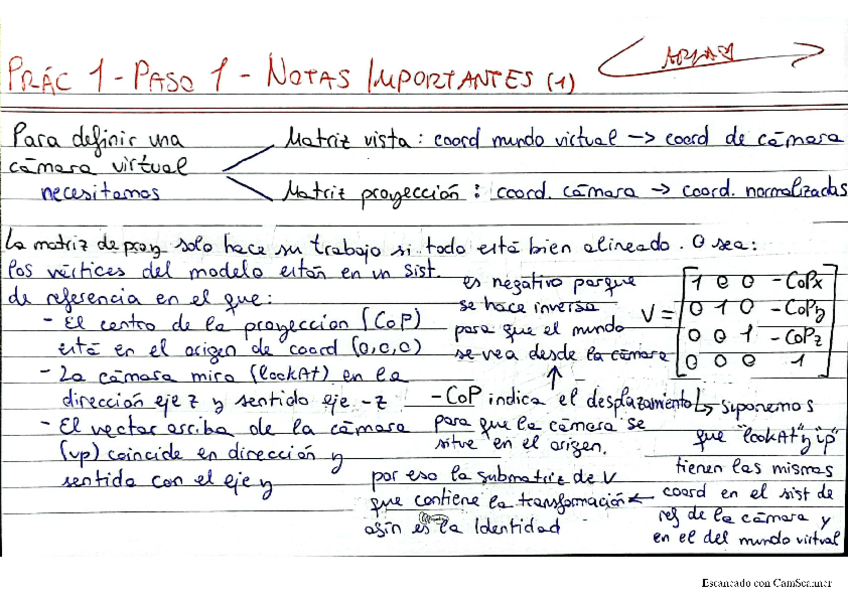 PRÁC 1 - PASO 1 - NOTAS IMPORTANTES (1)
Para definir una
cámara virtual
necesitamos
Matriz vista : coord mundo virtual → coord de cámara
Matriz proyección : coord. cámara → coord. normalizadas
La matriz de proy solo hace su trabajo si todo está bien alineado. O sea:
los vértices del modelo están en un sist.
de referencia en el que:
- El centro de la proyección (CoP)
está en el origen de coord (0,0,0)
- La cámara mira (lookAt) en la
dirección eje z y sentido eje -z
- El vector arriba de la cámara
(up) coincide en dirección y
sentido con el eje y
es negativo porque
se hace inversa
para que el mundo
se vea desde la cámara
V = [1 0 0 -CoPx
0 1 0 -CoPy
0 0 1 -CoPz
0 0 0 1]
↑
-CoP indica el desplazamiento
para que la cámara se
sitve en el origen.
↳ suponemos
que "lookAt" y "up"
tienen las mismas
coord en el sist de
ref de la cámara y
en el del mundo virtual
por eso la submatriz de V
que contiene la transformación ←
afín es la Identidad
Escaneado con CamScanner